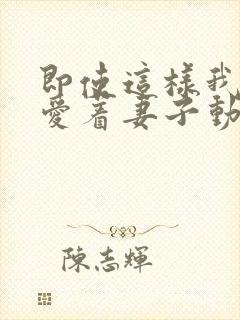 即使這樣我
愛着妻子動
陳志輝